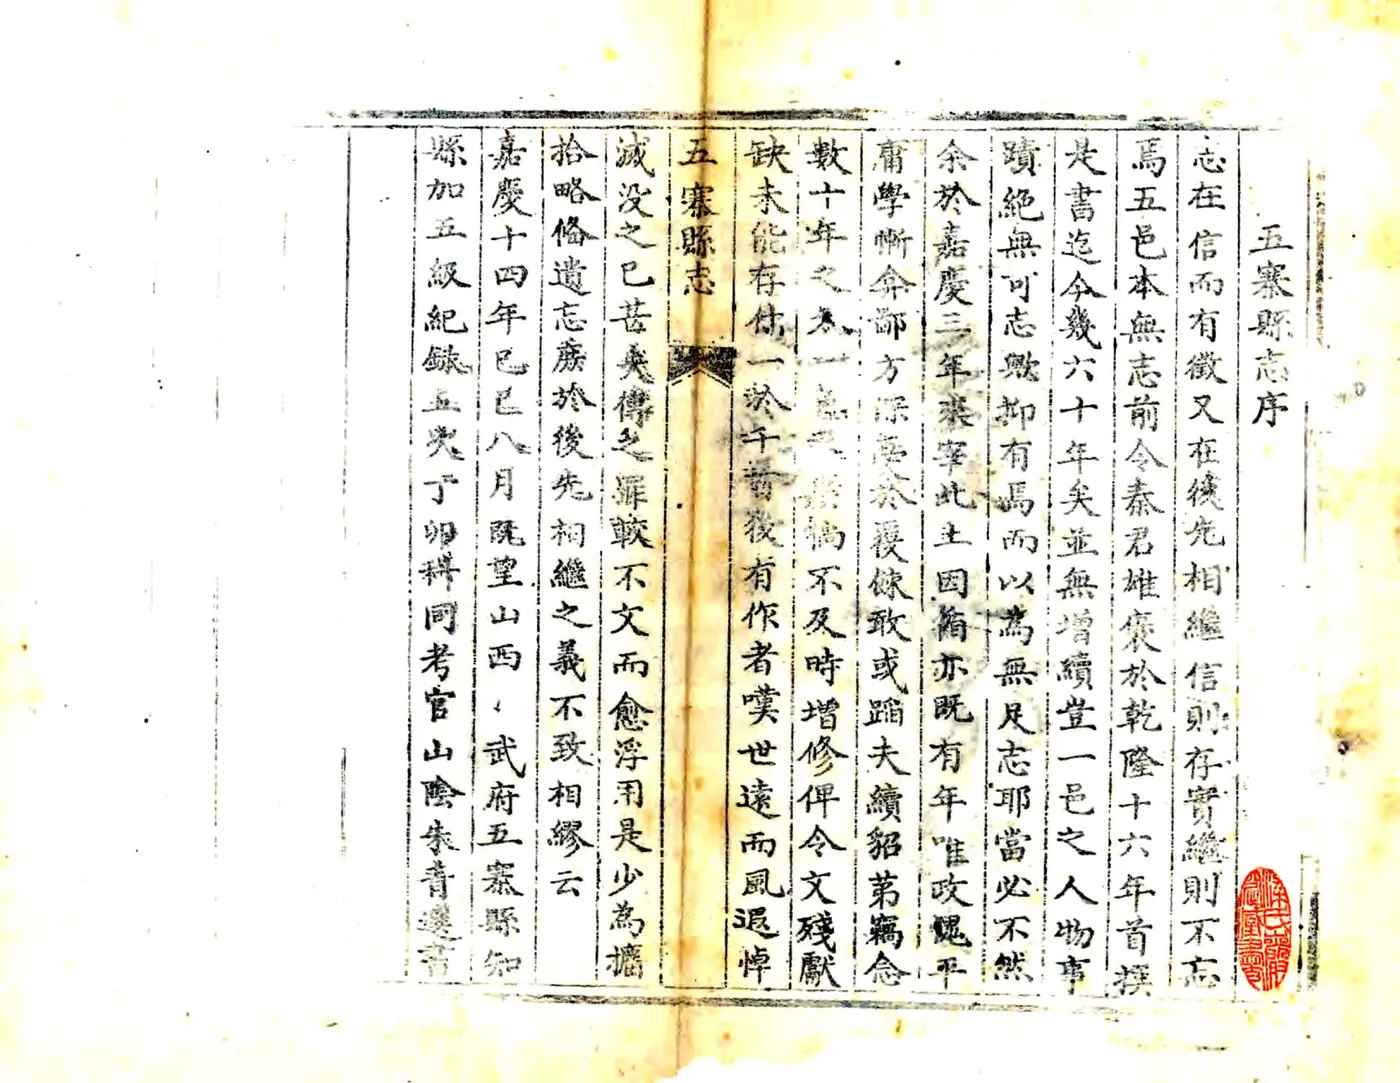 五寨縣志序
志在信而有徵又在後先相繼信則存實繼則不忘
焉五邑本無志前令秦君雄褒於乾隆十六年首撰
是書迄今幾六十年矣並無增續豈一邑之人物事
蹟絕無可志歟抑有焉而以為無足志耶當必不然
余於嘉慶三年蒞宰此土因循亦既有年唯政愧平
庸學慚弇鄙方深於覆餗敢或蹈夫續貂苐竊念
數十年之久一邑之不及時增修俾令文殘獻
缺未能存什一於千百後有作者嘆世遠而風遐悼
五寨縣志
滅没之已甚矣傳之罪較不文而愈浮用是少為攟
拾略俻遺忘庶於後先相繼之義不致相繆云
嘉慶十四年巳巳八月既望山西武府五寨縣知
縣加五級紀錄五次丁卯科同考官山陰朱青選書